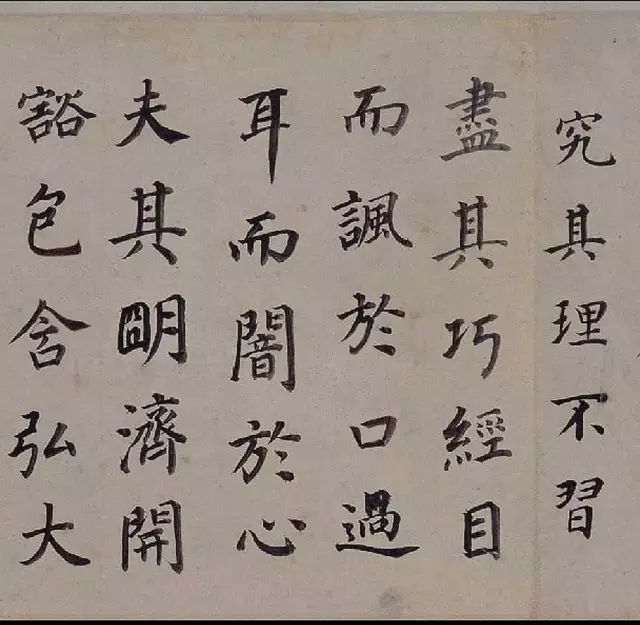 究其理不習
盡其巧經目
而諷於口過
耳而闇於心
夫其朙濟開
豁包含弘大